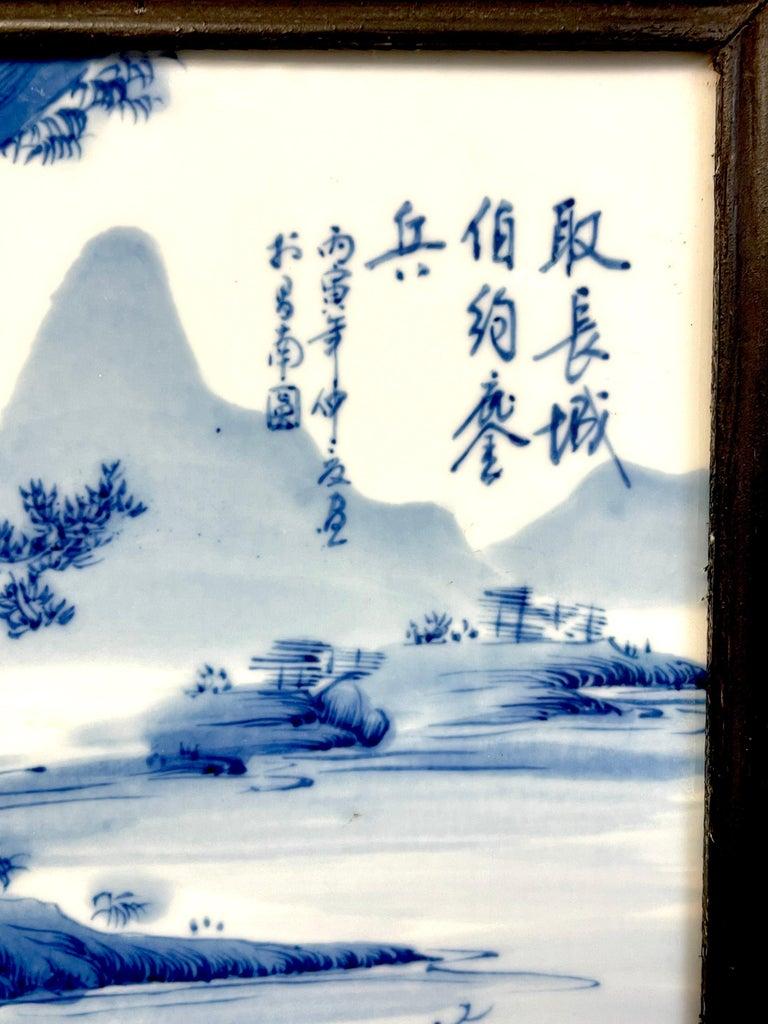 取長城
伯约鏖
兵
丙寅年仲夏画
於昌南圖